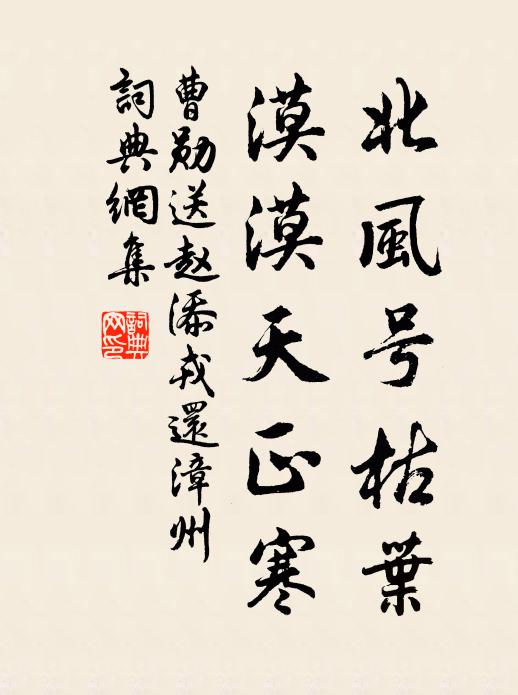 北風号枯葉
漠漠天正寒
曹勛送赵添戎還漳州
詞典網集
詞典網印